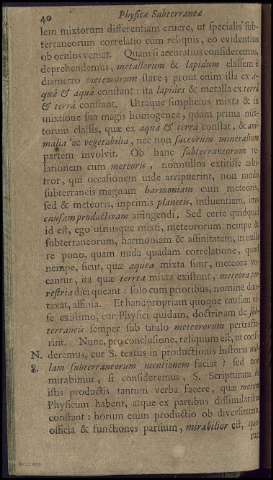 40 Physicæ Subterraneæ
lem mixtorum differentiam eruere, ut specialis sub-
terraneorum correlatio cum reliquis, eo evidentius
ob oculos versetur. Quam si accuratius consideremus,
deprehendemus, metallorum & lapidum classem è
diametro meteororum stare; prout enim illa ex a-
quâ & aquâ constant: ita lapides & metalla ex terrâ
& terrâ constant. Utraque simplicius mixta & in
mixtione sua magis homogenea, quàm prima mix-
torum classis, quæ ex aqua & terra constat, & ani-
malia ac vegetabilia, nec non succorum mineralium
partem involvit. Ob hanc subterraneorum re-
lationem cum meteoris, nonnullos extitisse arbi-
tror, qui occasionem inde arripuerint, non modò
subterraneis magnam harmoniam cum meteoris,
sed & meteoris, inprimis planetis, influentiam, imò
causam productivam affingendi. Sed certè quidquid
id est, ego utriusque mixti, meteororum nempe &
subterraneorum, harmoniam & affinitatem, in
re pono, quam nuda quadam correlatione, quâ
nempe, sicut, quæ aquea mixta sunt, meteora vo-
cantur, ita quæ terrea mixta existunt, meteora ter-
restria dici queant: solo cum prioribus, nomine dun-
taxat, affinia. Et hanc propriam quoque causam es-
se existimo, cur Physici quidam, doctrinam de sub-
terraneis semper sub titulo meteororum pertracta-
rint. Nunc, pro conclusione, reliquum est, ut consi-
N. deremus, cur S. textus in productionis historia nul-
8. lam subterraneorum mentionem faciat? sed non
mirabimur, si consideremus, S. Scripturam de
istis productis tantum verba facere, quæ motum
Physicum habent, atque ex partibus dissimilaribus
constant: horum enim productio ob diversitatem
officia & functiones partium, mirabilior est, quàm